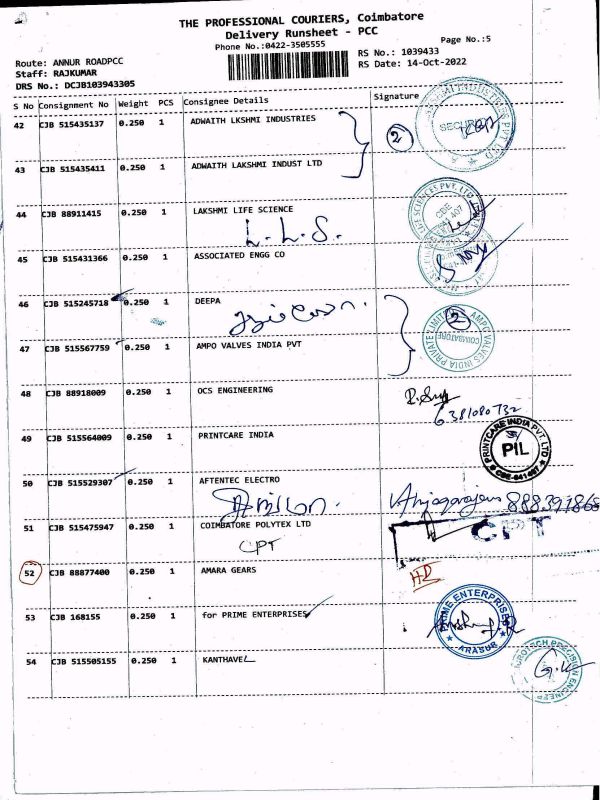 THE PROFESSIONAL COURIERS, Coimbatore
Delivery Runsheet - PCC
Phone No.:0422-3505555
Page No.:5
Route: ANNUR ROADPCC
RS No.: 1039433
Staff: RAJKUMAR
RS Date: 14-Oct-2022
DRS No.: DCJB103943305
S No Consignment No Weight PCS Consignee Details Signature
42 CJB 515435137 0.250 1 ADWAITH LKSHMI INDUSTRIES
SECURITY
2
43 CJB 515435411 0.250 1 ADWAITH LAKSHMI INDUST LTD
44 CJB 88911415 0.250 1 LAKSHMI LIFE SCIENCE
L.L.S.
45 CJB 515431366 0.250 1 ASSOCIATED ENGG CO
46 CJB 515245718 0.250 1 DEEPA
2
AMPO VALVES INDIA PRIVATE LIMITED
COIMBATORE
47 CJB 515567759 0.250 1 AMPO VALVES INDIA PVT
48 CJB 88918009 0.250 1 OCS ENGINEERING
6381080732
49 CJB 515564009 0.250 1 PRINTCARE INDIA
PRINTCARE INDIA PVT LTD
PIL
50 CJB 515529307 0.250 1 AFTENTEC ELECTRO
51 CJB 515475947 0.250 1 COIMBATORE POLYTEX LTD
CPT
CPT
52 CJB 88877400 0.250 1 AMARA GEARS
HD
53 CJB 168155 0.250 1 for PRIME ENTERPRISES
PRIME ENTERPRISES
ARASUR
54 CJB 515505155 0.250 1 KANTHAVEL
G.K